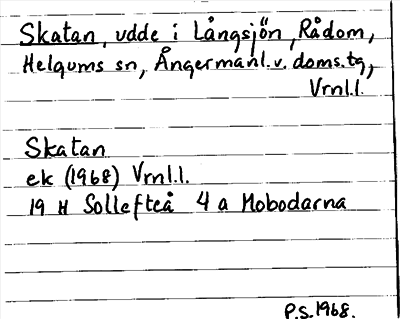 Skatan, udde i Långsjön, Rådom,
Helgums sn, Ångermanl. v. doms. tg,
Vrnl.l.
Skatan
ek (1968) Vrnl.l.
19 H Sollefteå 4 a Mobodarna
P.S. 1968.